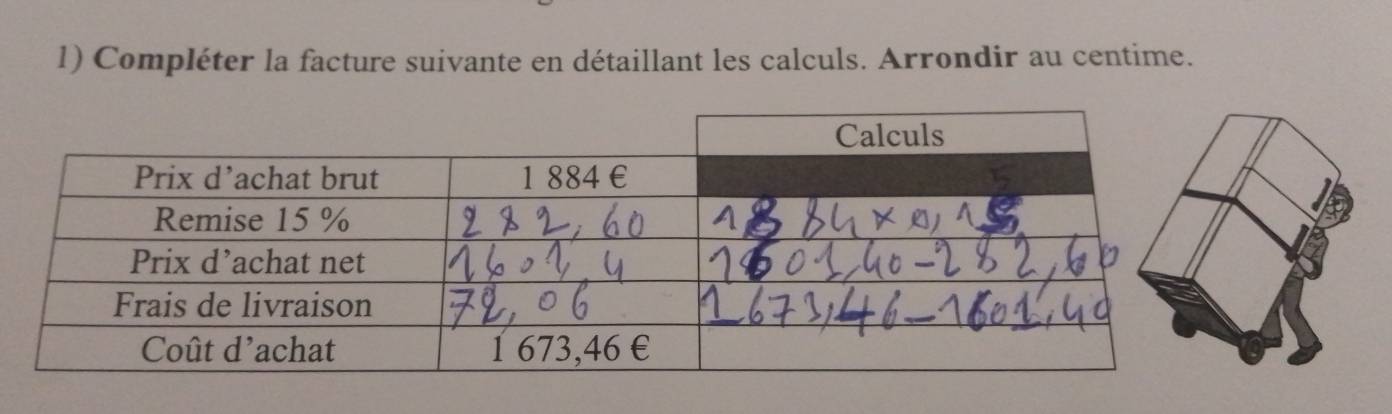 1) Compléter la facture suivante en détaillant les calculs. Arrondir au centime.
Calculs
Prix d'achat brut 1 884 €
5
Remise 15 % 282,60 1884 x 0,15
Prix d'achat net 1601,4 1601,40-282,60
Frais de livraison 72,06 1673,46-1601,40
Coût d'achat 1 673,46 €